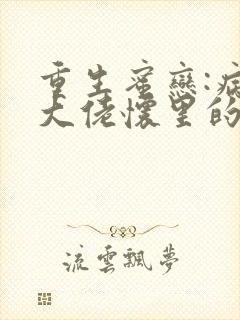 重生蜜戀:病
大佬懷里的
流雲飄夢